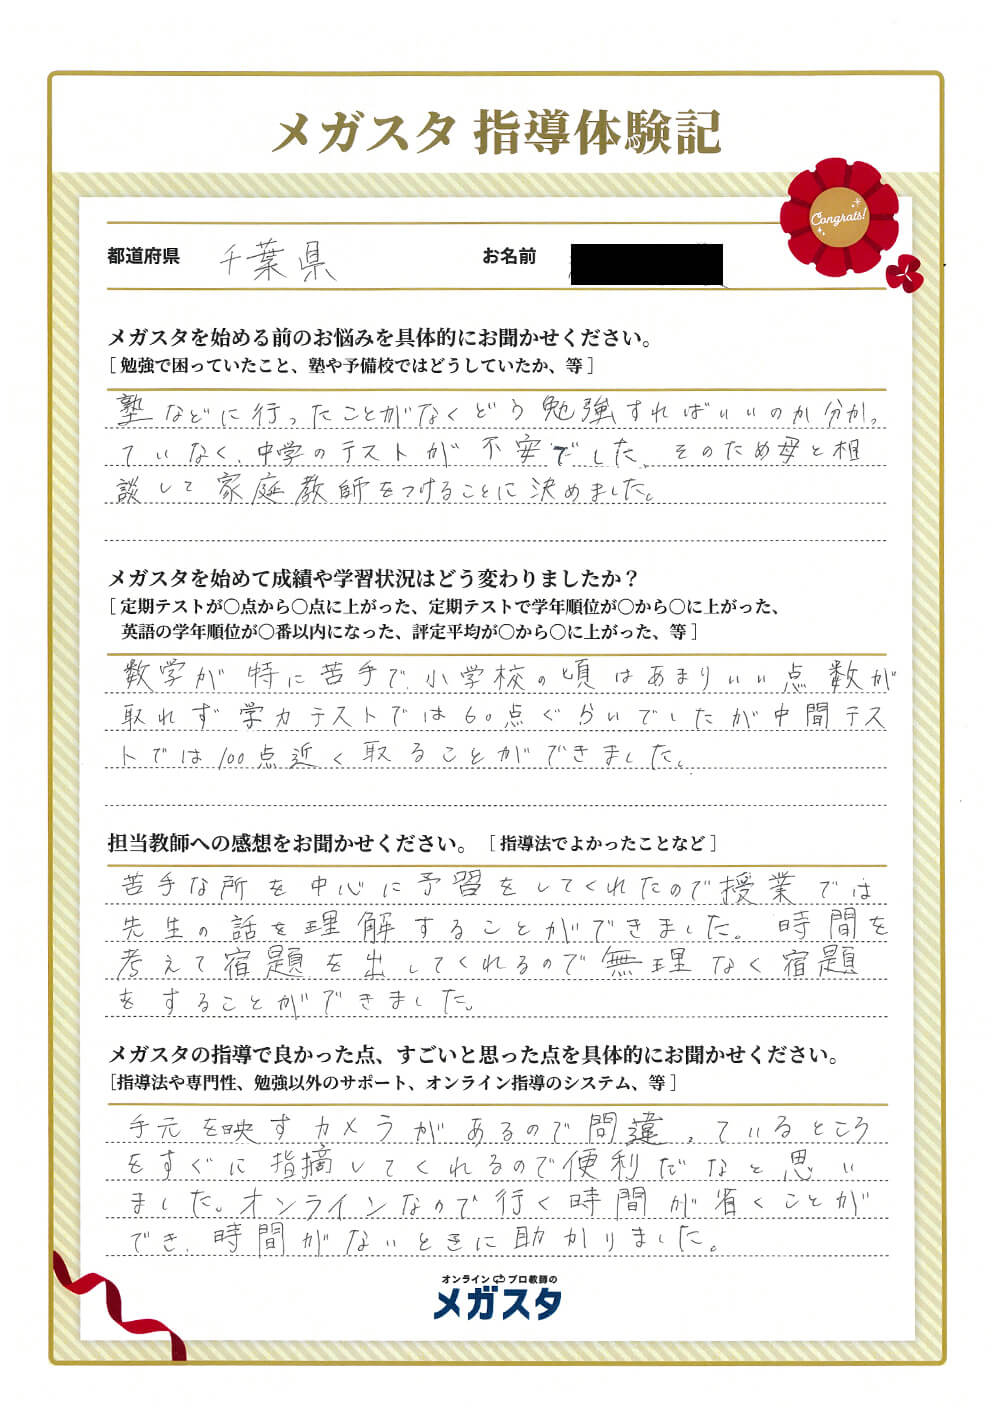 メガスタ 指導体験記
Congrats!
都道府県 千葉県 お名前
メガスタを始める前のお悩みを具体的にお聞かせください。
[ 勉強で困っていたこと、塾や予備校ではどうしていたか、等 ]
塾などに行ったことがなくどう勉強すればいいのか分かっ
ていなく、中学のテストが不安でした。そのため母と相
談して家庭教師をつけることに決めました。
メガスタを始めて成績や学習状況はどう変わりましたか？
[ 定期テストが〇点から〇点に上がった、定期テストで学年順位が〇から〇に上がった、
英語の学年順位が〇番以内になった、評定平均が〇から〇に上がった、等 ]
数学が特に苦手で、小学校の頃はあまりいい点数が
取れず学力テストでは60点ぐらいでしたが中間テス
トでは100点近く取ることができました。
担当教師への感想をお聞かせください。 [ 指導法でよかったことなど ]
苦手な所を中心に予習をしてくれたので授業では
先生の話を理解することができました。時間を
考えて宿題を出してくれるので無理なく宿題
をすることができました。
メガスタの指導で良かった点、すごいと思った点を具体的にお聞かせください。
[指導法や専門性、勉強以外のサポート、オンライン指導のシステム、等 ]
手元を映すカメラがあるので間違っているところ
をすぐに指摘してくれるので便利だなと思い
ました。オンラインなので行く時間が省くことが
でき、時間がないときに助かりました。
オンライン プロ教師の
メガスタ